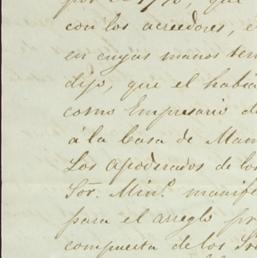 por el 1790, que
con los acreedores, e
en cuyas manos ten
dijo, que el habia
como Empresario de
á la Casa de Mam
Los apoderados de los
Sor. Minl. manife
para el arreglo pr
compuesta de los Sre